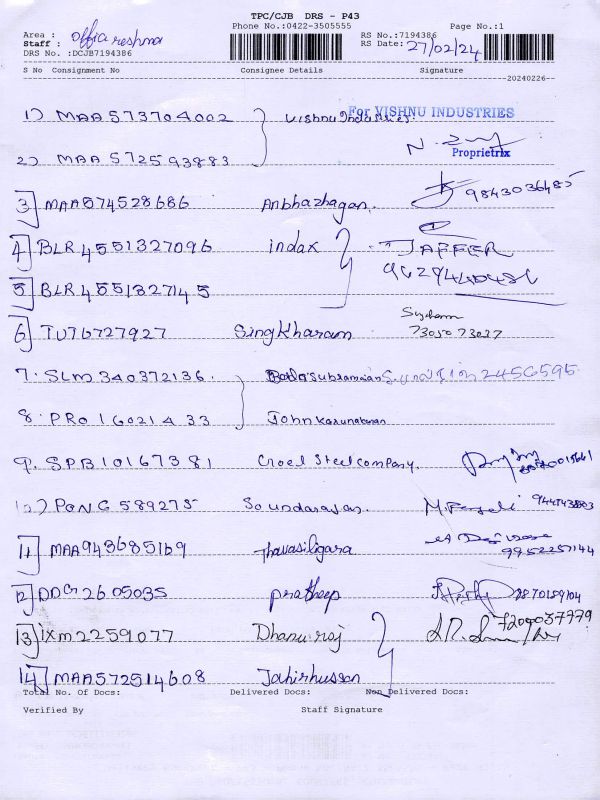 TPC/CJB DRS - P43
Phone No.:0422-3505555 Page No.:1
Area : Offia reshma
Staff :
DRS No. :DCJB7194386
RS No.:7194386
RS Date: 27/02/24
S No Consignment No Consignee Details Signature
20240226
For VISHNU INDUSTRIES
1) MAA 573704002 Vishnu Industries
2) MAA 572593883 Proprietrix
3 MAA574528686 Anbhazhagan. 9843036485
4 BLR 4551327096 indax JAFFER
5 BLR 455132714 5
6 TUT6727927 Singkharam 7305073037
7. SLM 340372136. Balasubramaian 2456595
8. PRO 16021433 John Karunakaran
9. SPB10167381 Croel Steel company.
10) PONG 589275 Soundarajan.
11 MAA943685169 Thavasiligara 9952257144
12 DDG 2605035 pratheep 9870159104
13 IXM2259077 Dhanuraj 7200037779
14 MAA572514608 Jahirhussan
Total No. Of Docs: Delivered Docs: Non Delivered Docs:
Verified By Staff Signature